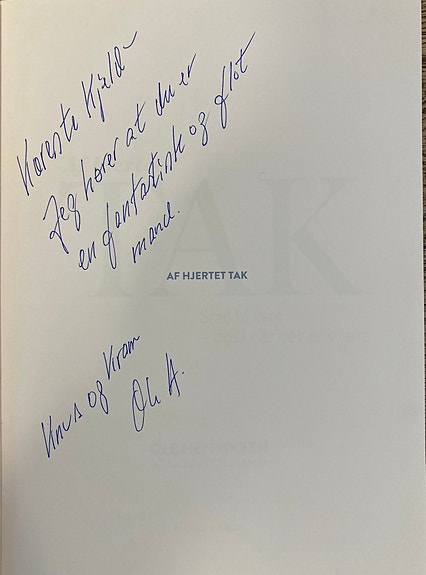 Kæreste Kjeld
Jeg hører at du er
en fantastisk og flot
mand.
AF HJERTET TAK
TAK
Knus og Kram
Ole H.
OLE HENRIKSEN